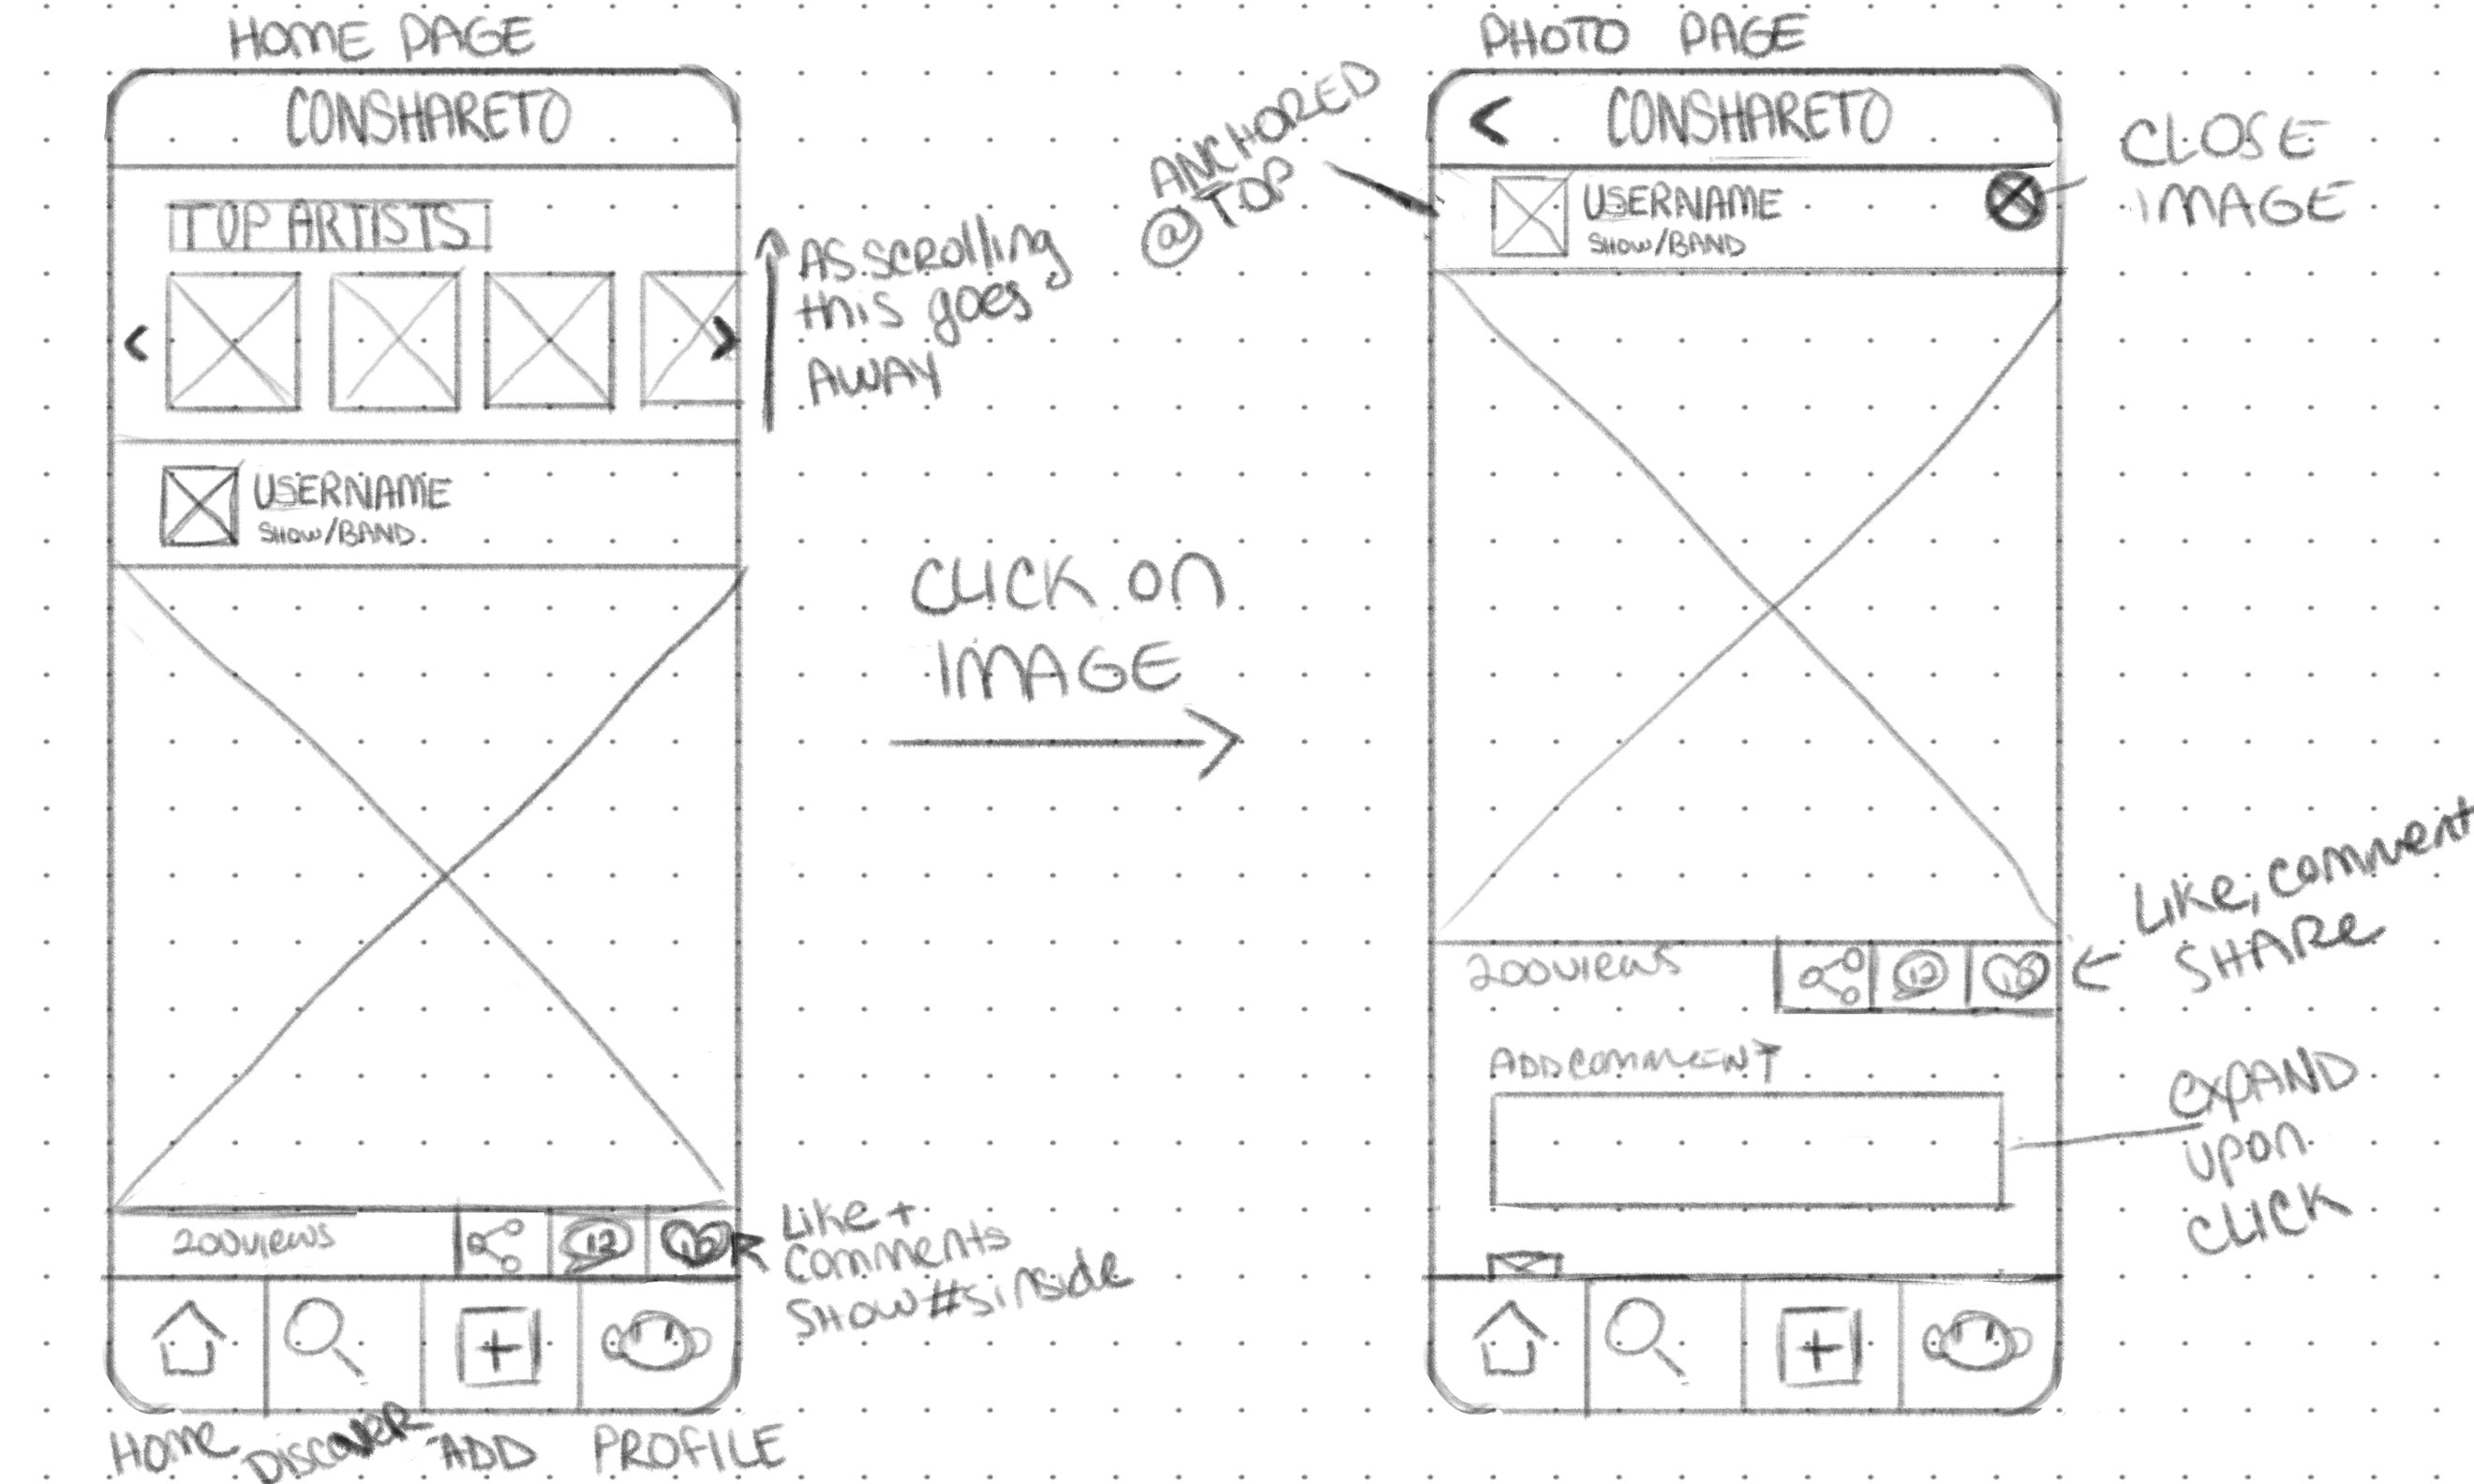 HOME PAGE
CONSHARETO
TOP ARTISTS
AS SCROLLING
THIS GOES
AWAY
USERNAME
SHOW/BAND
200 VIEWS
12
LIKE +
COMMENTS
SHOW #S INSIDE
HOME
DISCOVER
ADD
PROFILE
CLICK ON
IMAGE
PHOTO PAGE
ANCHORED
@ TOP
CONSHARETO
USERNAME
SHOW/BAND
CLOSE
IMAGE
200 VIEWS
12
LIKE, COMMENT
SHARE
ADD COMMENT
EXPAND
UPON
CLICK